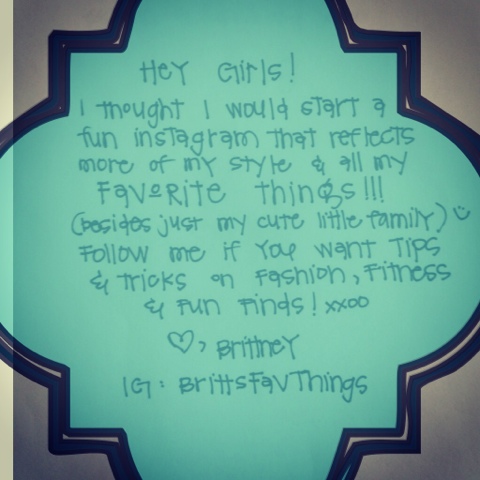 Hey Girls!
I thought I would start a
fun instagram that reflects
more of my style & all my
FavoRITE things!!!
(besides just my cute little family) ☺
Follow me if You want Tips
& Tricks on Fashion, Fitness
& Fun Finds! xxoo
♡, Brittney
IG: BrittsFavThings